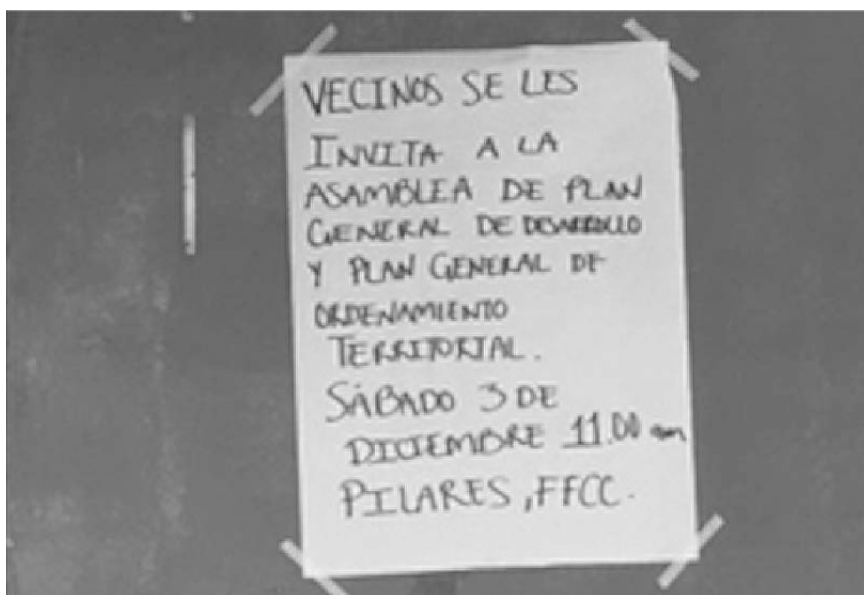 VECINOS SE LES
INVITA A LA
ASAMBLEA DE PLAN
GENERAL DE DESARROLLO
Y PLAN GENERAL DE
ORDENAMIENTO
TERRITORIAL.
SÁBADO 3 DE
DICIEMBRE 11.00 am
PILARES, FFCC.